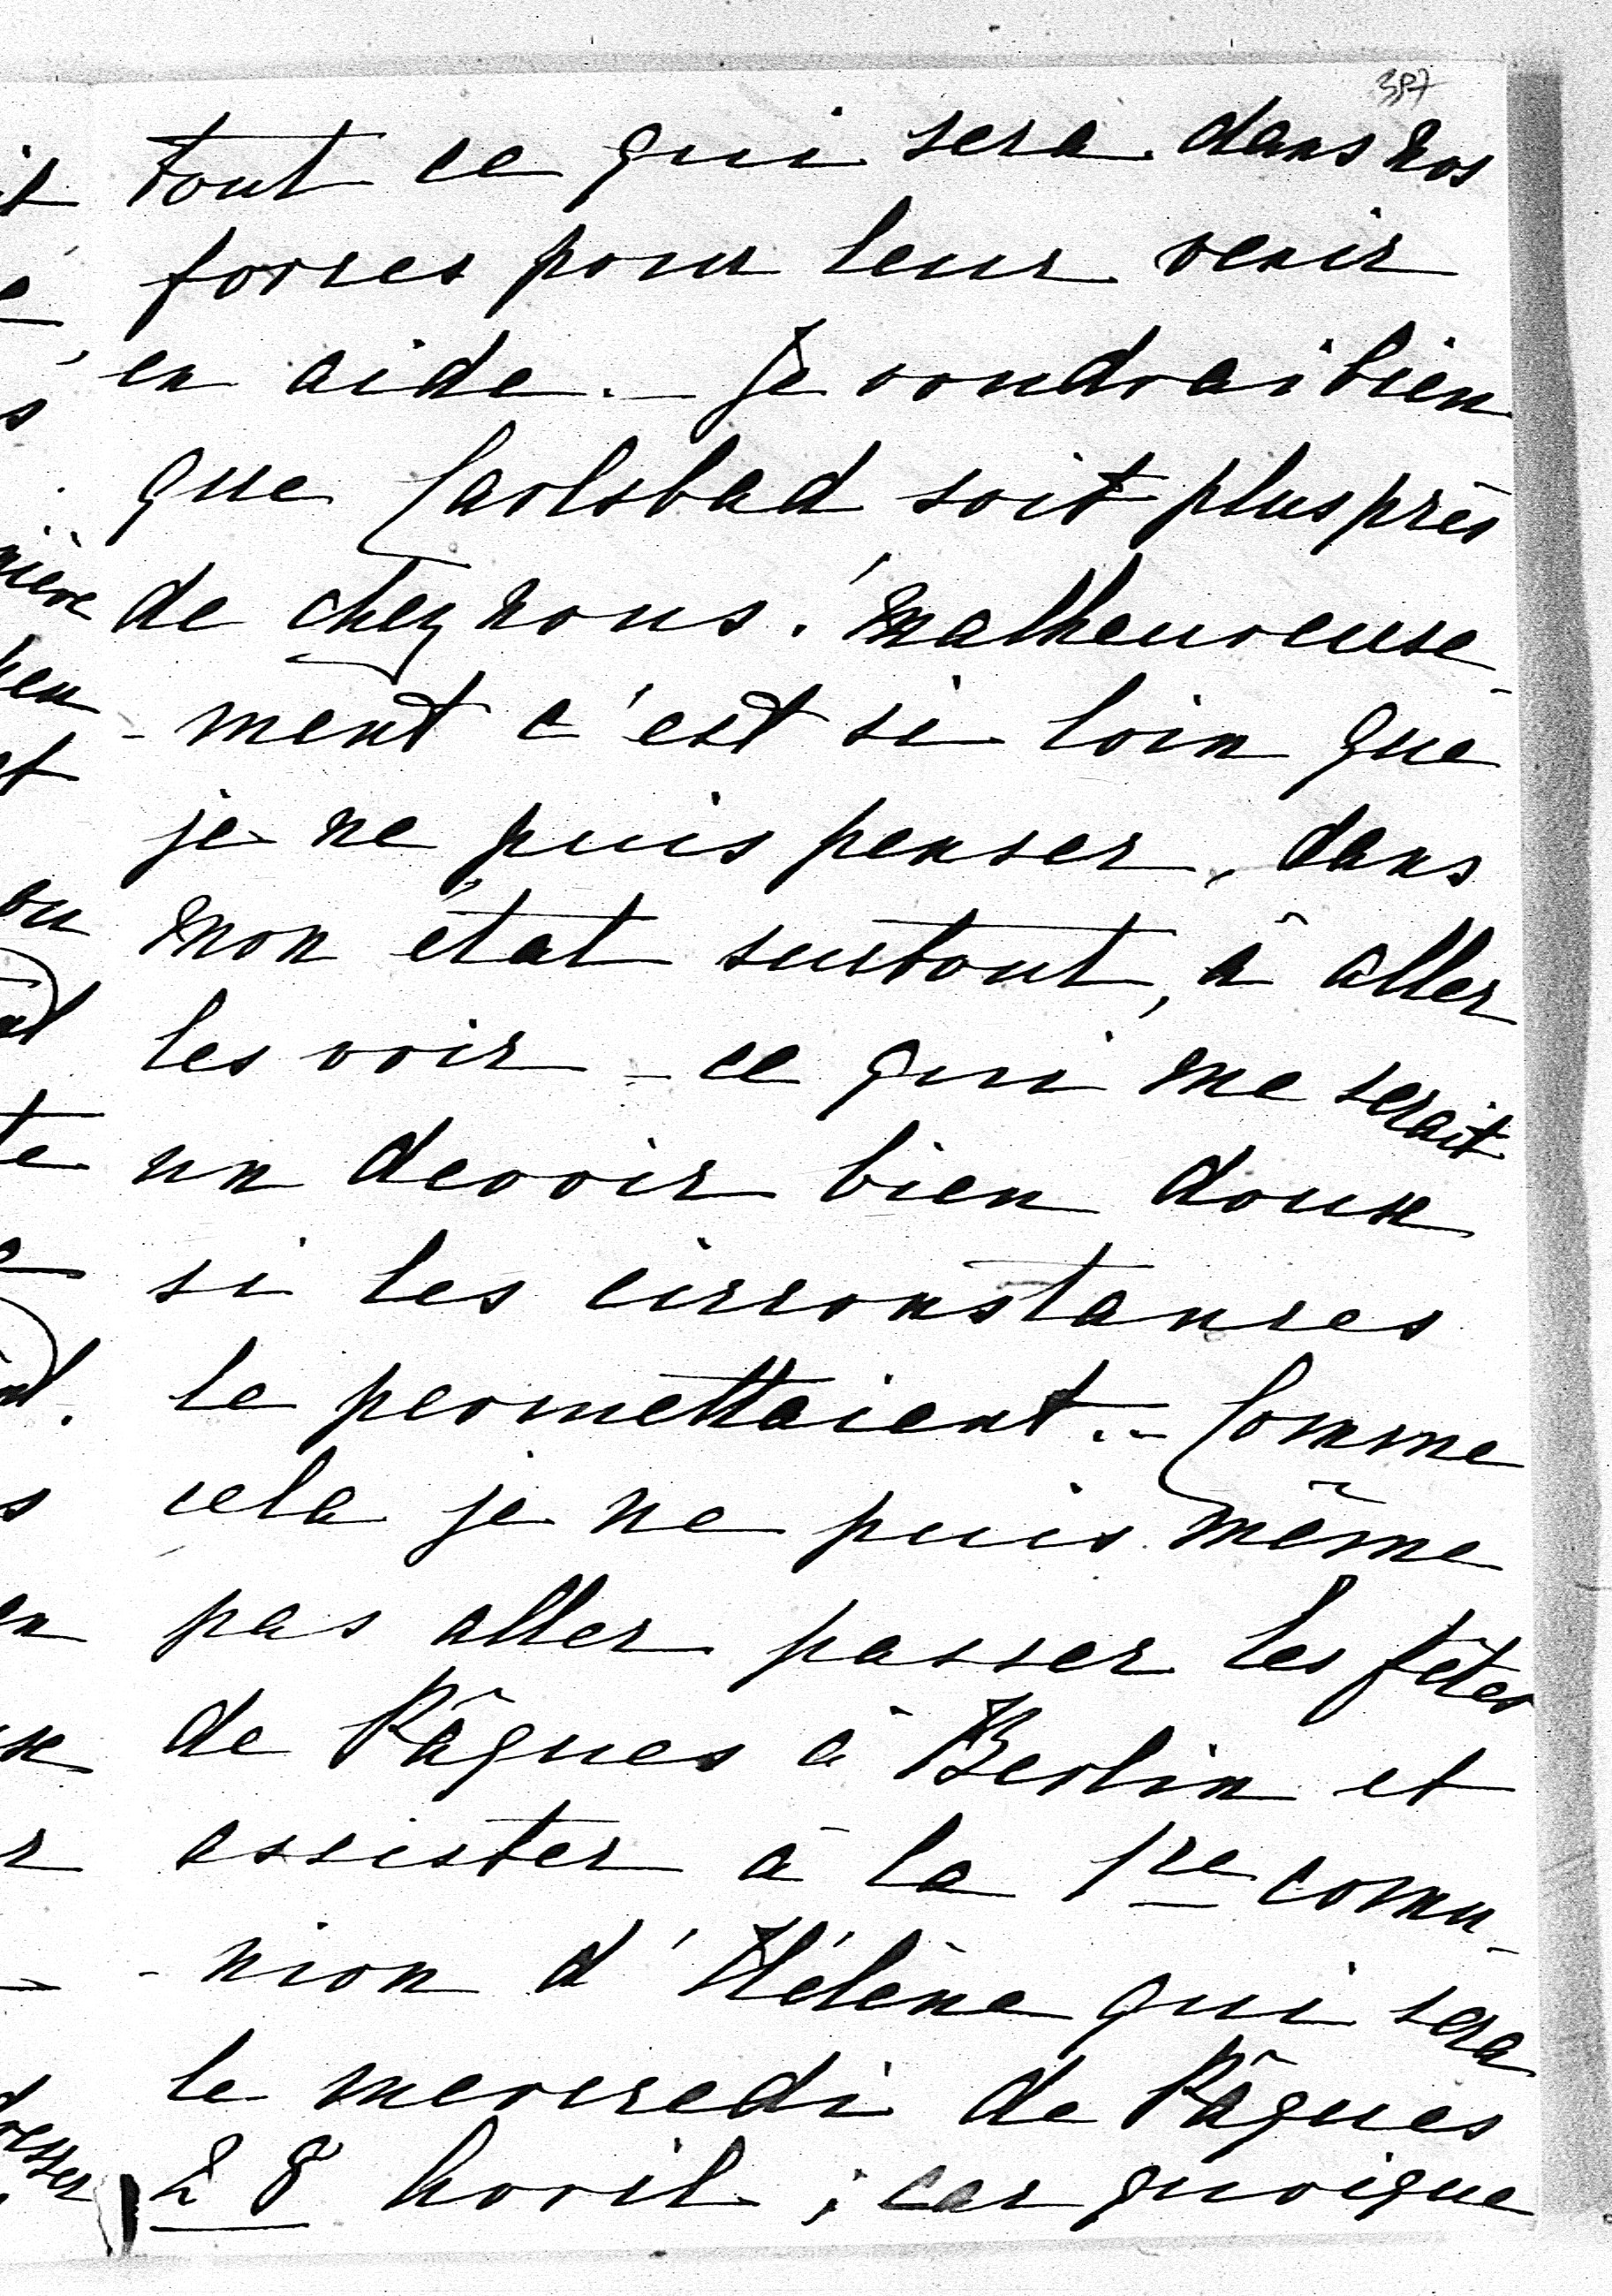 397
tout ce qui sera dans nos
forces pour leur venir
en aide. – Je voudrai bien
que Carlsbad soit plus près
de chez nous. Malheureuse-
-ment c'est si loin que
je ne puis penser, dans
mon état surtout, à aller
les voir – ce qui me serait
un devoir bien doux
si les circonstances
le permettaient. – Comme
cela je ne puis même
pas aller passer les fêtes
de Pâques à Berlin et
assister à la 1re comu-
-nion d'Hélène qui sera
le mercredi de Pâques
28 Avril ; car quoique